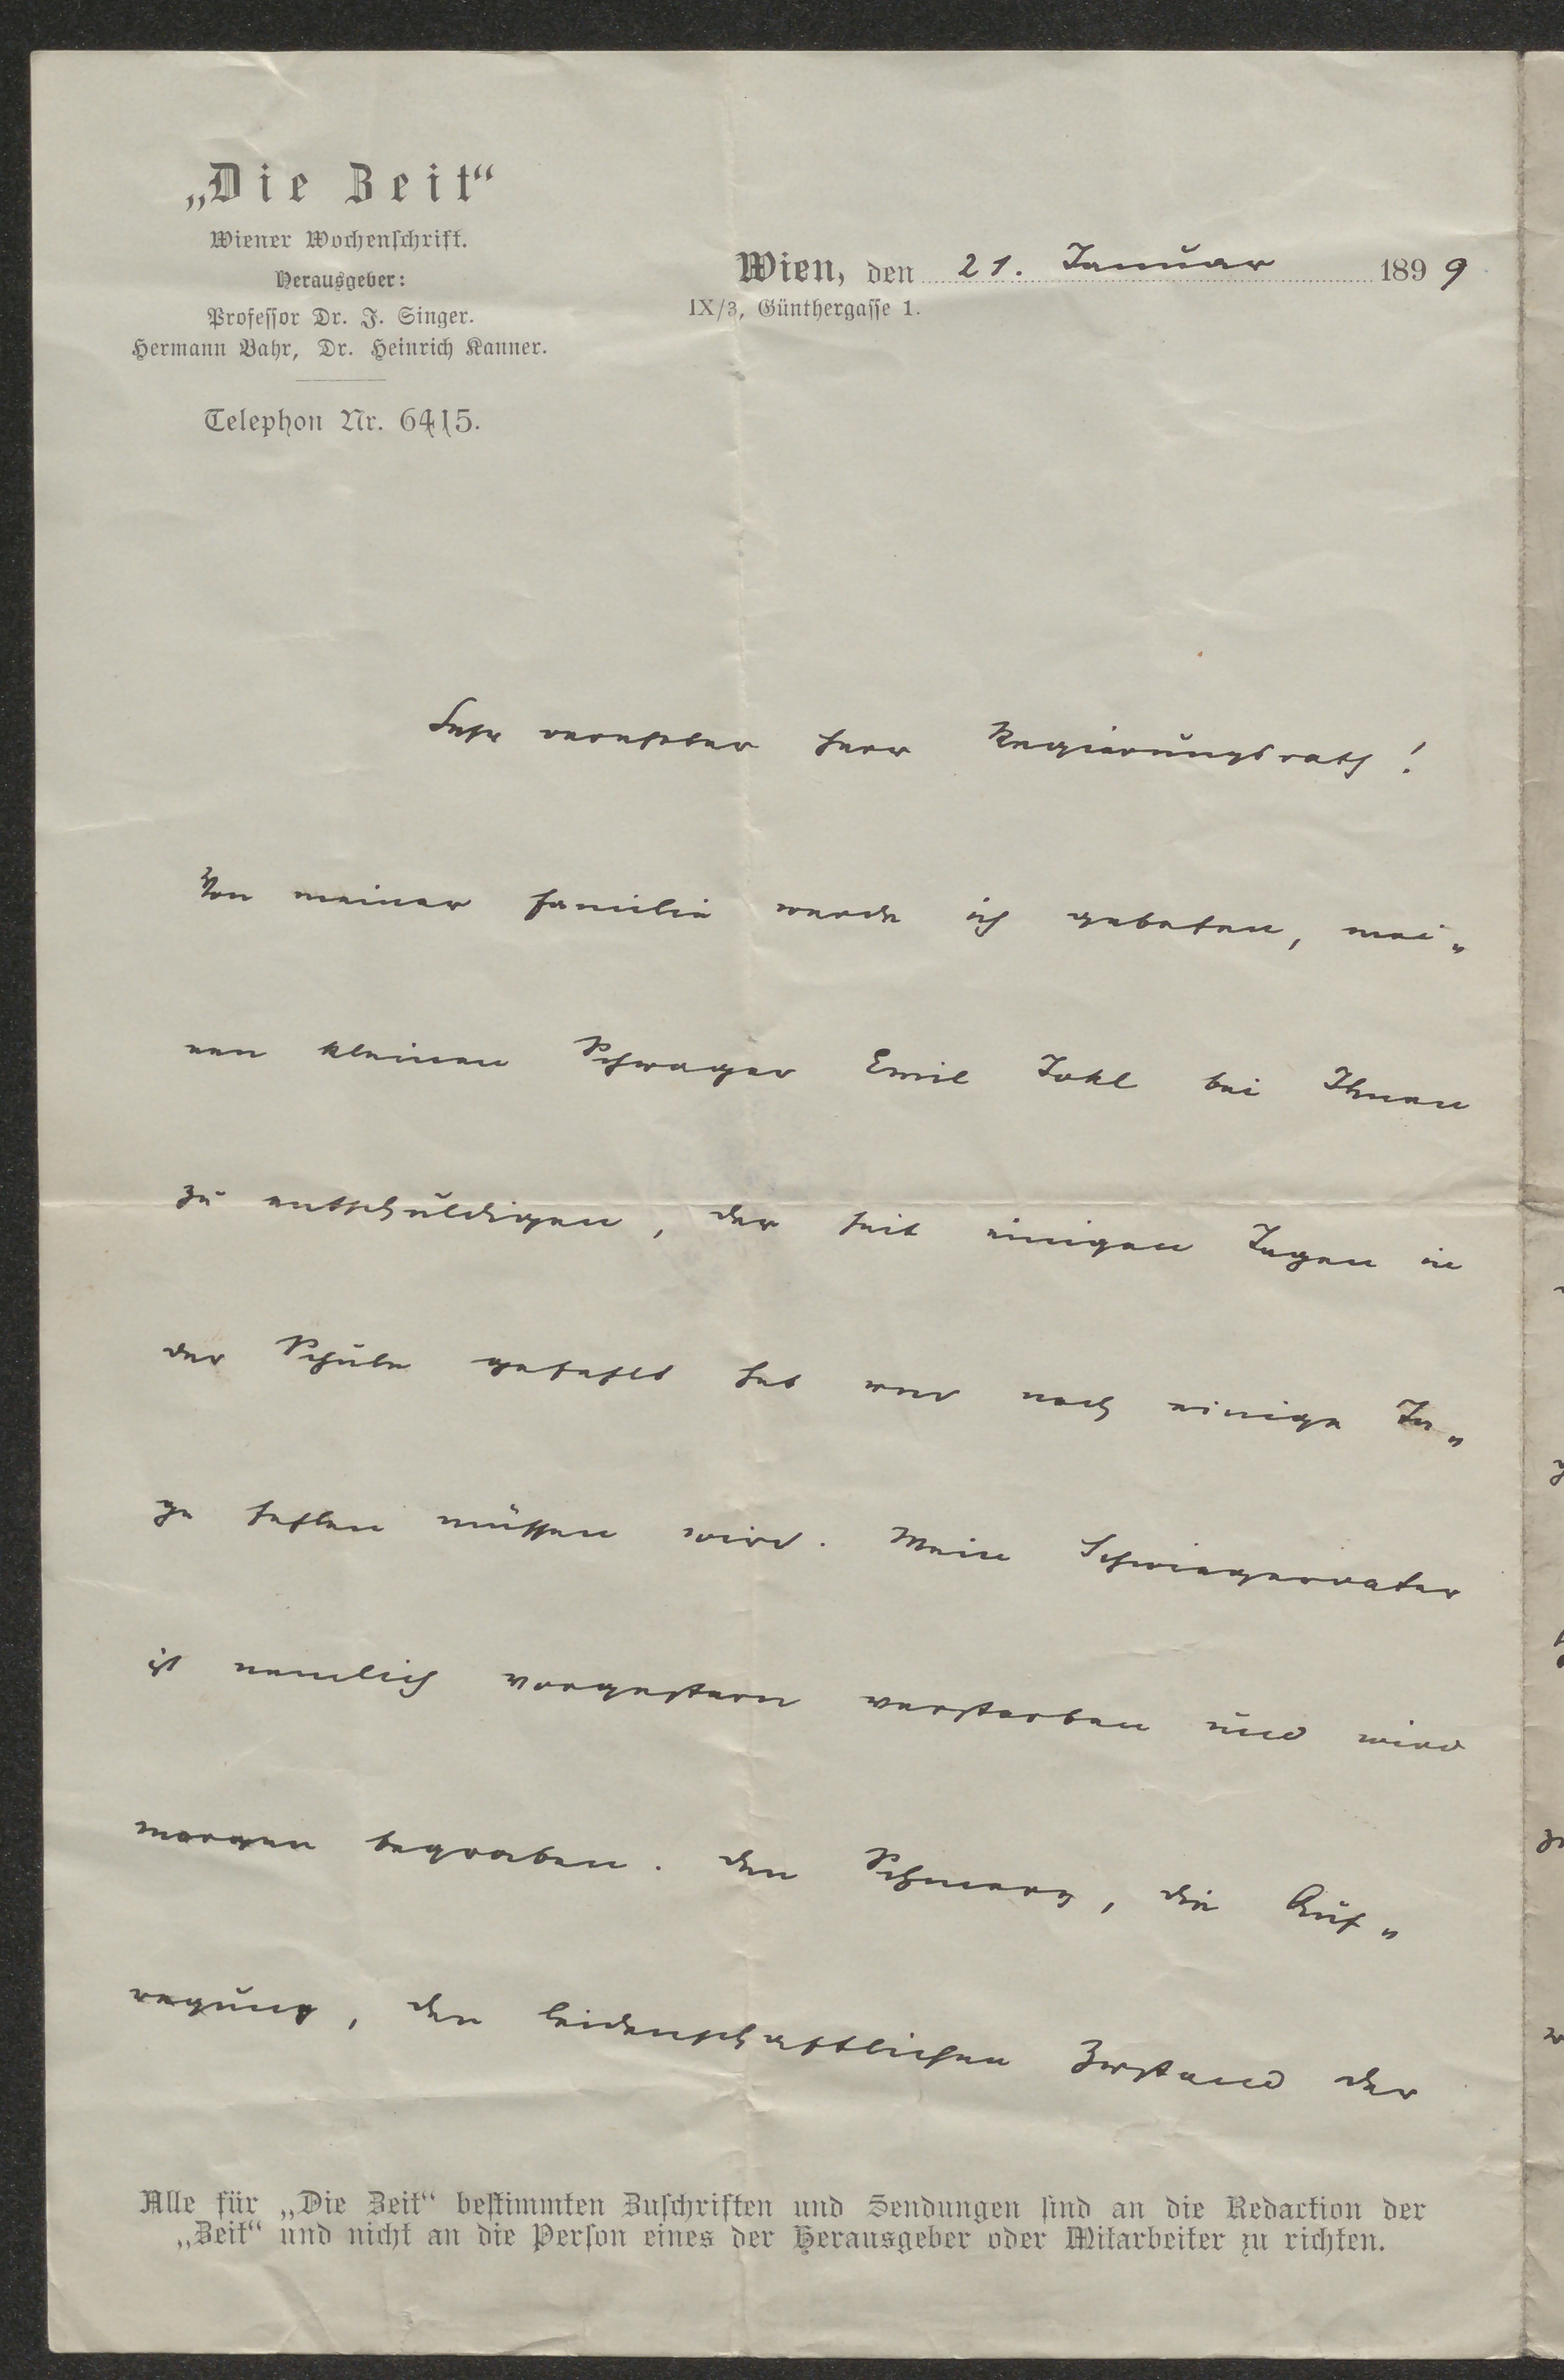 „Die Zeit“
Wiener Wochenschrift.
Herausgeber:
Professor Dr. J. Singer.
Hermann Bahr, Dr. Heinrich Kanner.
Telephon Nr. 6415.
Wien, den 21. Januar 1899
IX/3, Günthergasse 1.
Sehr verehrter Herr Regierungsrath!
Von meiner Familie werde ich gebeten, mei„
nen kleinen Schwager Emil Jokl bei Ihnen
zu entschuldigen, der seit einigen Tagen in
der Schule gefehlt hat und noch einige Ta„
ge fehlen müssen wird. Mein Schwiegervater
ist nemlich vorgestern verstorben und wird
morgen begraben. Den Schmerz, die Auf„
regung, den leidenschaftlichen Zustand der
Alle für „Die Zeit“ bestimmten Zuschriften und Sendungen sind an die Redaction der
„Zeit“ und nicht an die Person eines der Herausgeber oder Mitarbeiter zu richten.